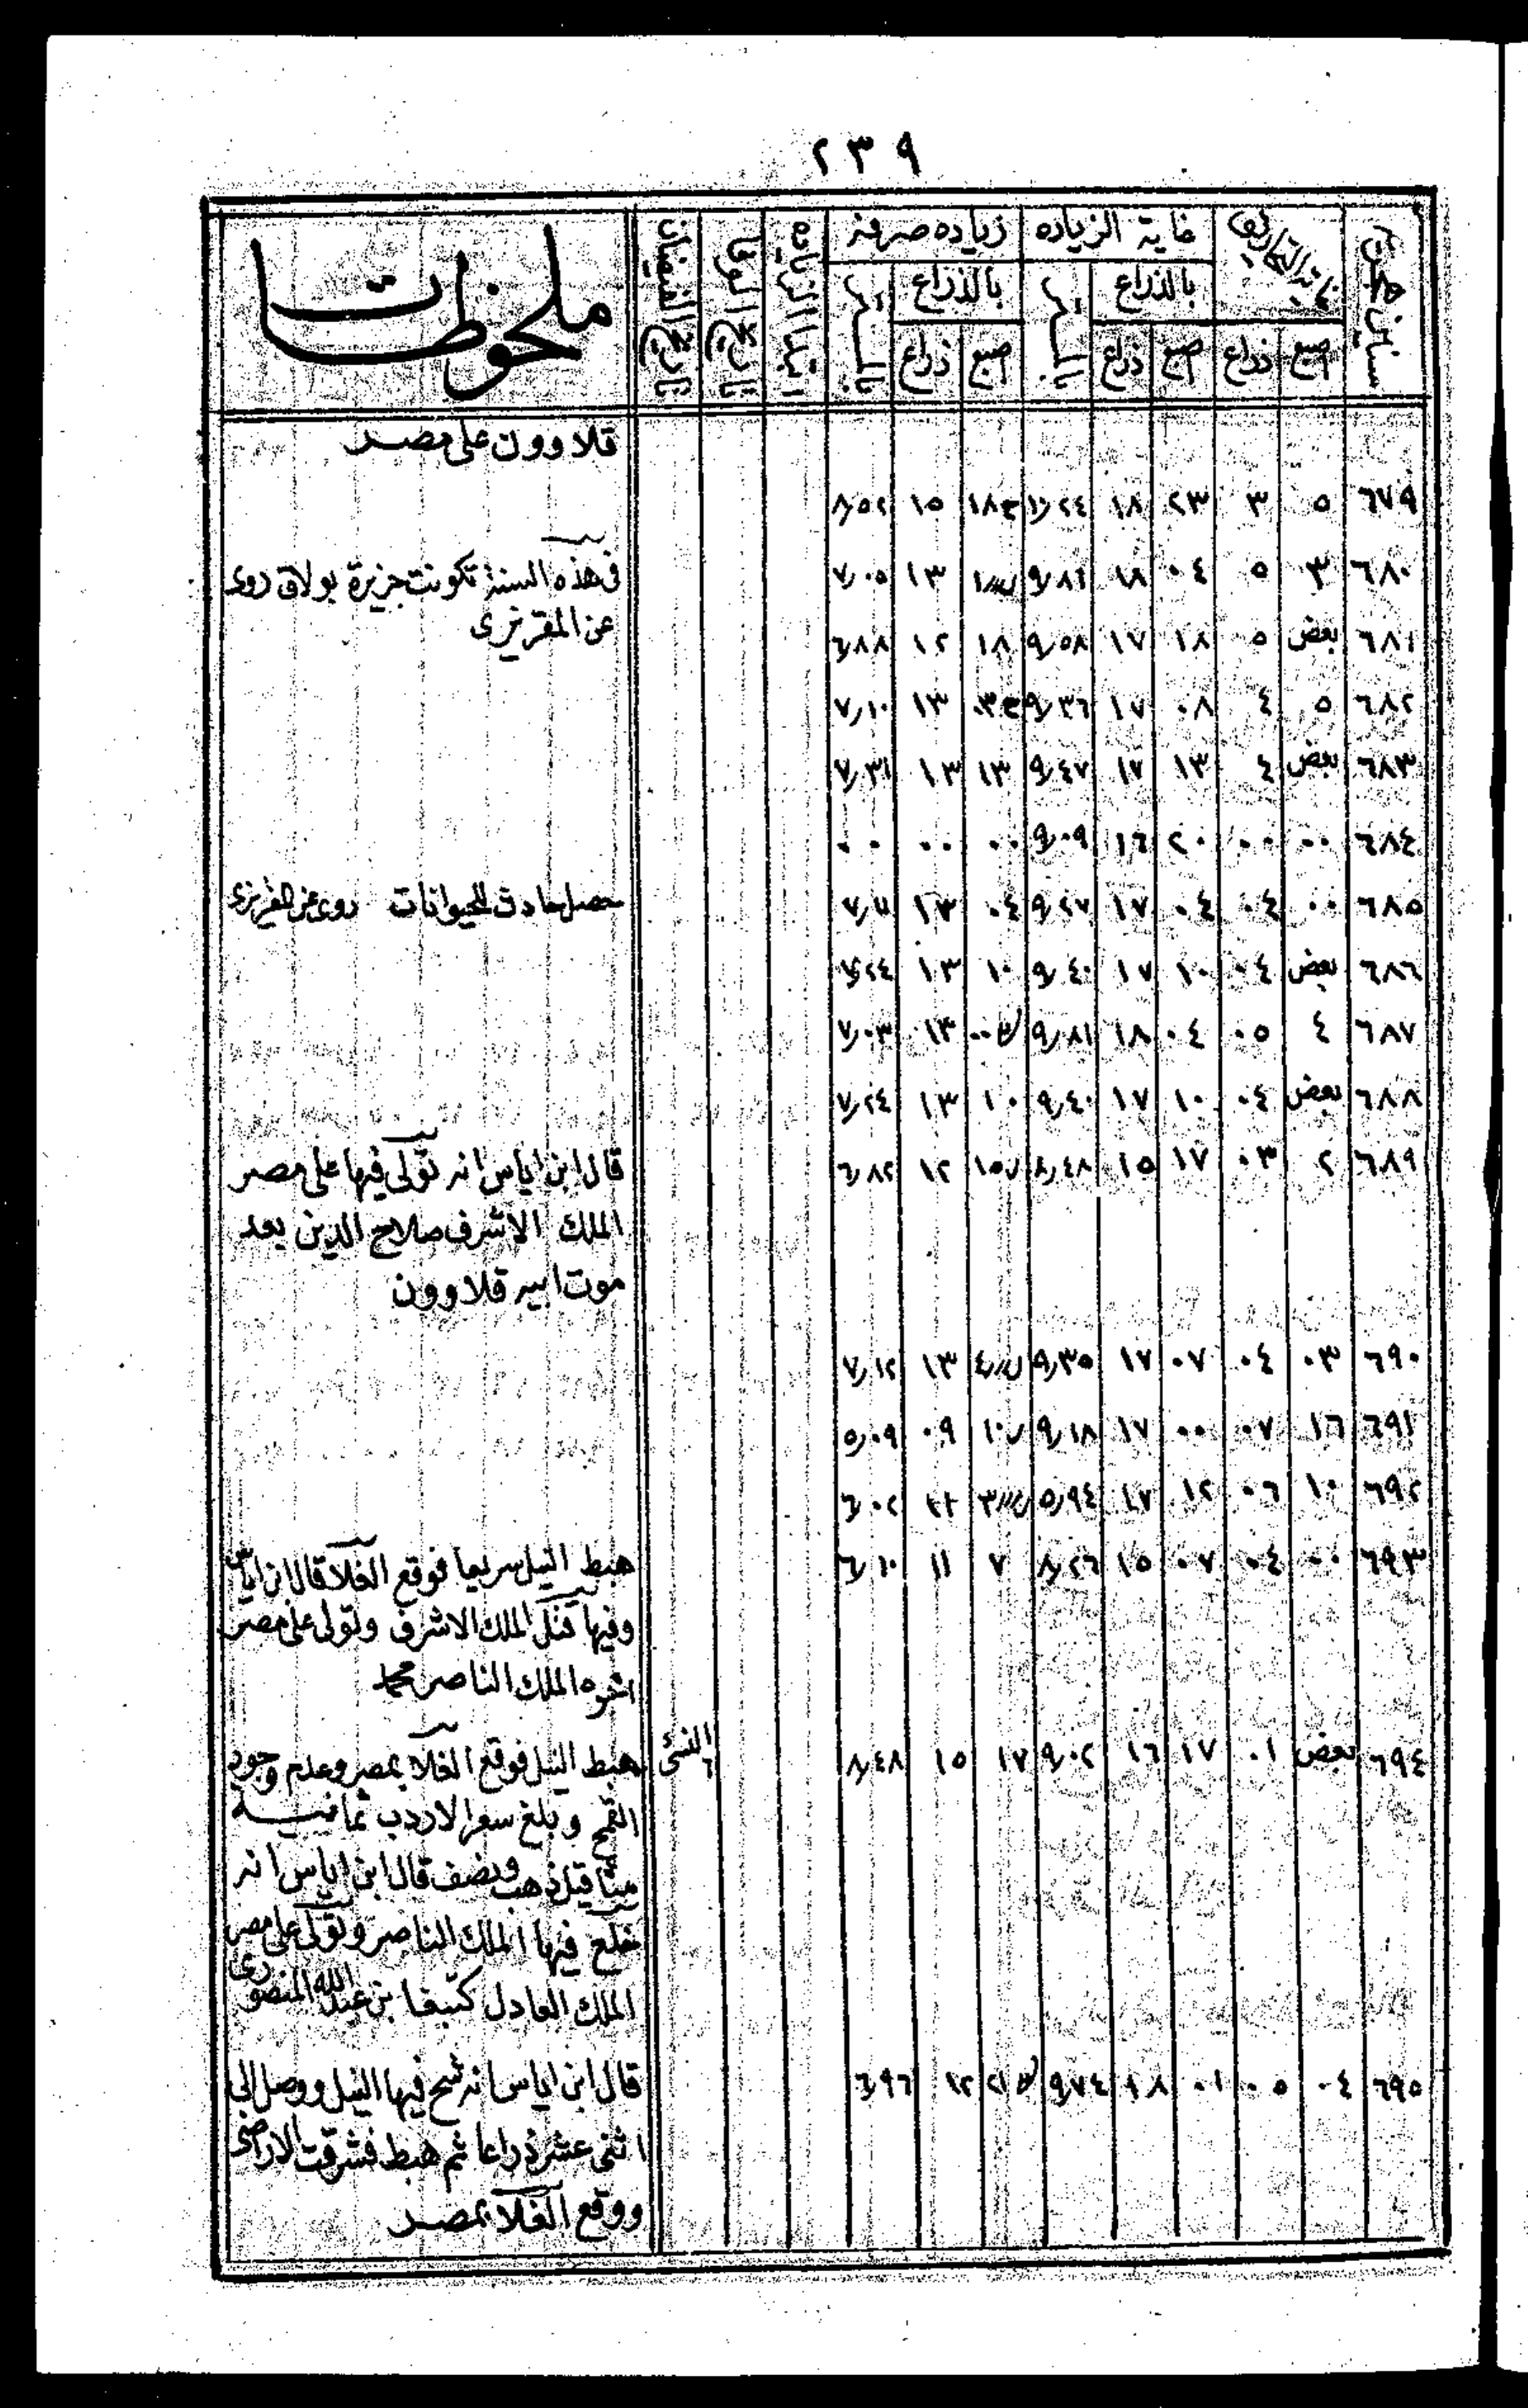 ٢٣٩
سنين هجرية
غاية التحاريق
غاية الزياده
زياده صرفه
ابتدا الزياده
تاريخ الوفا
تاريخ النقصان
ملحوظات
بالذراع
بالذراع
اصبع ذراع اصبع ذراع اصبع ذراع
قلاوون على مصر
٦٧٩ ٥ ٣ ٢٣ ١٨ ١٨ ١٥ ٨,٥٢
٦٨٠ ٣ ٥ ٠٤ ١٨ ٩,٨١ ١ ١٣ ٧,٠٥
فى هذه السنة تكونت جزيرة بولاق روى
عن المقريزى
٦٨١ بعض ٥ ١٨ ١٧ ٩,٥٨ ١٨ ١٢ ٦,٨٨
٦٨٢ ٥ ٤ ٠٨ ١٧ ٩,٣٦ ١٣ ٧,١٠
٦٨٣ بعض ٤ ١٣ ١٧ ٩,٤٧ ١٣ ١٣ ٧,٣١
٦٨٤ ٠٠ ٠٠ ٢٠ ١٦ ٩,٠٩ ٠٠ ٠٠ ٠٠
٦٨٥ ٠٠ ٠٤ ٠٤ ١٧ ٩,٢٧ ٠٤ ١٣ ٧,١١
حصل حادث للحيوانات روى عن المقريزى
٦٨٦ بعض ٠٤ ١٠ ١٧ ٩,٤٠ ١٠ ١٣ ٧,٢٤
٦٨٧ ٤ ٠٥ ٠٤ ١٨ ٩,٨١ ٠٠ ١٣ ٧,٠٣
٦٨٨ بعض ٠٤ ١٠ ١٧ ٩,٤٠ ١٠ ١٣ ٧,٢٤
٦٨٩ ٢ ٠٣ ١٧ ١٥ ٨,٤٨ ١٥ ١٢ ٦,٨٢
قال ابن اياس انه تولى فيها على مصر
الملك الاشرف صلاح الدين بعد
موت ابيه قلاوون
٦٩٠ ٠٣ ٠٤ ٠٧ ١٧ ٩,٣٥ ٤ ١٣ ٧,١٢
٦٩١ ١٦ ٠٧ ٠٠ ١٧ ٩,١٨ ١٠ ٠٩ ٥,٠٩
٦٩٢ ١٠ ٠٦ ١٢ ١٧ ٥,٩٤ ٣ ١١ ٦,٠٢
٦٩٣ ٠٠ ٠٤ ٠٧ ١٥ ٨,٢٦ ٧ ١١ ٦,١٠
هبط النيل سريعا فوقع الغلا قال ابن اياس
وفيها قتل الملك الاشرف وتولى على مصر
اخوه الملك الناصر محمد
٦٩٤ بعض ٠١ ١٧ ١٦ ٩,٠٢ ١٧ ١٥ ٨,٤٨ ٦ النسئ
هبط النيل فوقع الغلا بمصر وعدم وجود
القمح وبلغ سعر الاردب ثمانيه
مثاقيل ذهب ونصف قال ابن اياس انه
خلع فيها الملك الناصر وتولى على مصر
الملك العادل كتبغا بن عبد الله المنصورى
٦٩٥ ٠٤ ٠٥ ٠١ ١٨ ٩,٧٤ ٢١ ١٢ ٦,٩٦
قال ابن اياس انه شح فيها النيل ووصل الى
اثنى عشر ذراعا ثم هبط فشرقت الاراضى
ووقع الغلا بمصر